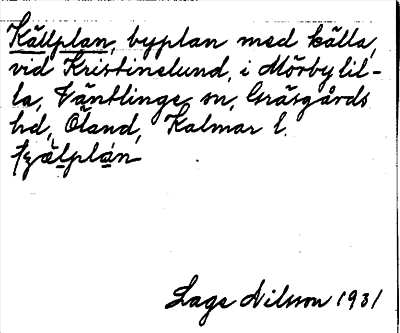 Källplan, byplan med källa,
vid Kristinelund, i Mörbylil-
la, Ventlinge sn, Gräsgårds
hd, Öland, Kalmar l.
Lage Nilsson 1931